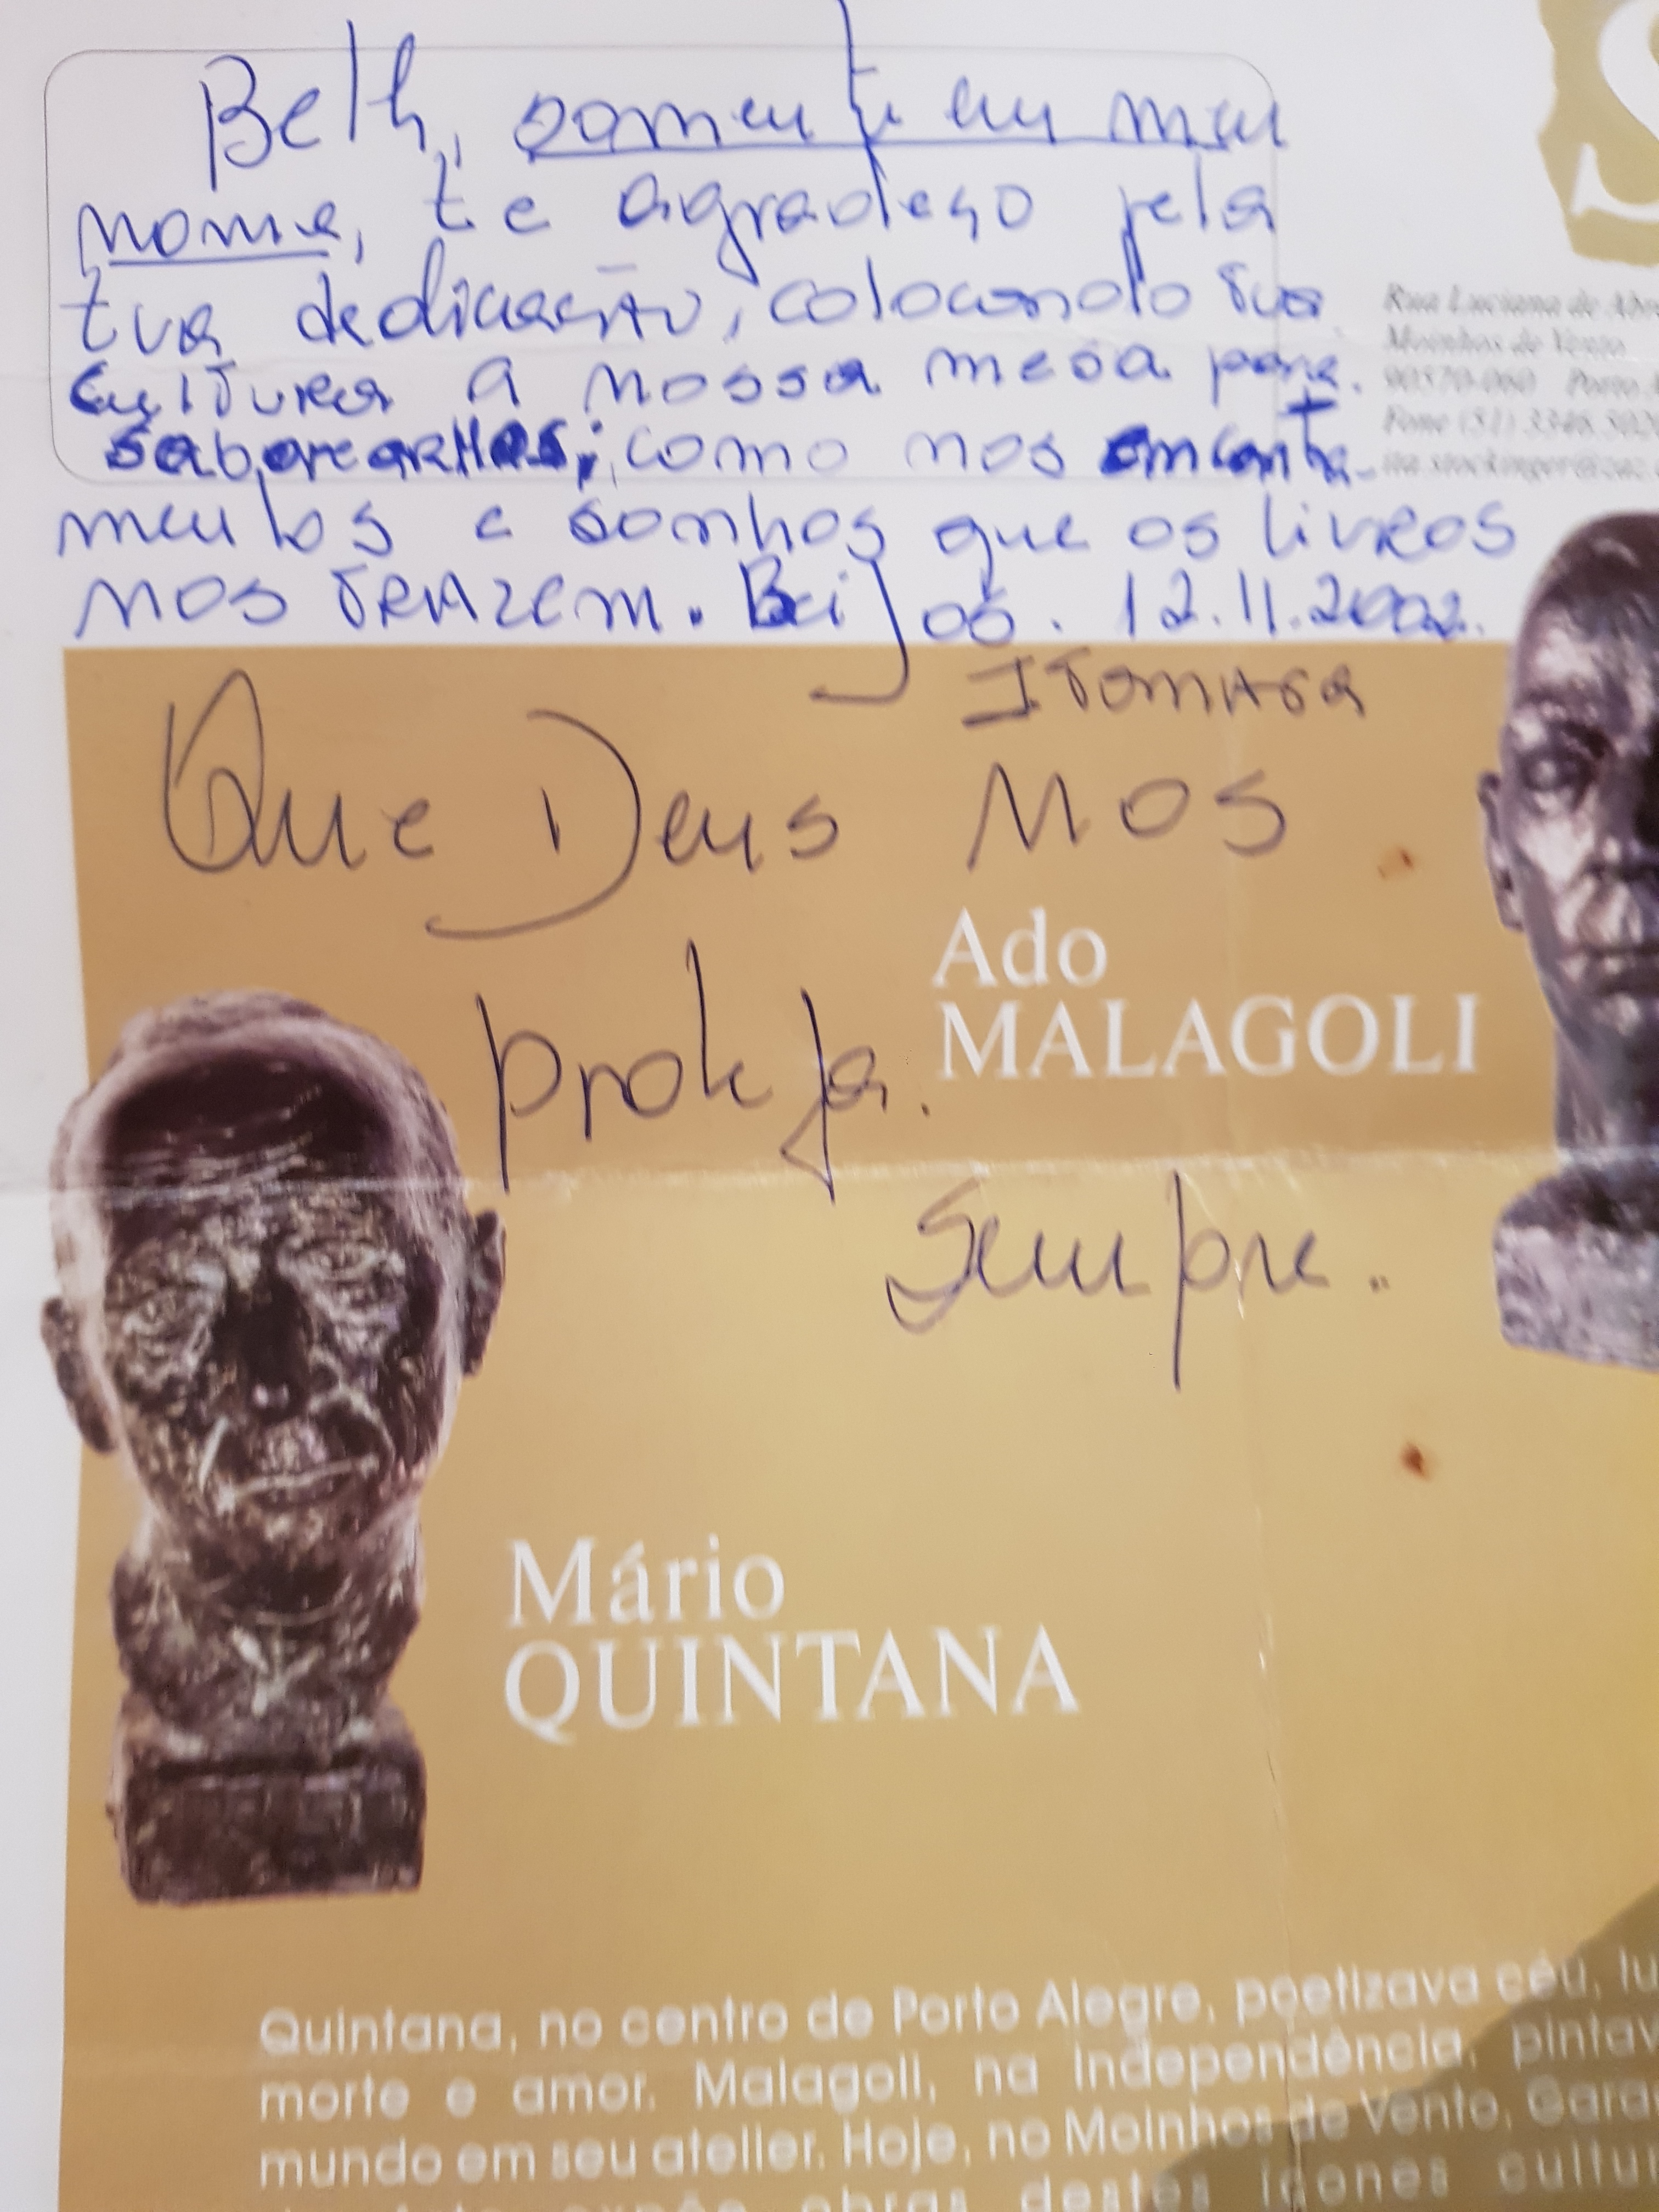 Beth, somente em meu
nome, te agradeço pela
tua dedicação, colocando tua
cultura a nossa mesa para
saborearmos; como nos encanta-
mentos e sonhos que os livros
nos trazem. Beijos. 12.11.2002.
Rua Luciana de Abre
Moinhos de Vento
90570-060 Porto A
Fone (51) 3346.5020
ita.stockinger@zaz.c
Que Deus nos
proteja.
sempre.
Ado
MALAGOLI
Mário
QUINTANA
Quintana, no centro de Porto Alegre, poetizava céu, lu
morte e amor. Malagoli, na Independência, pintav
mundo em seu atelier. Hoje, no Moinhos de Vento, Gara
expõe obras destes ícones cultur